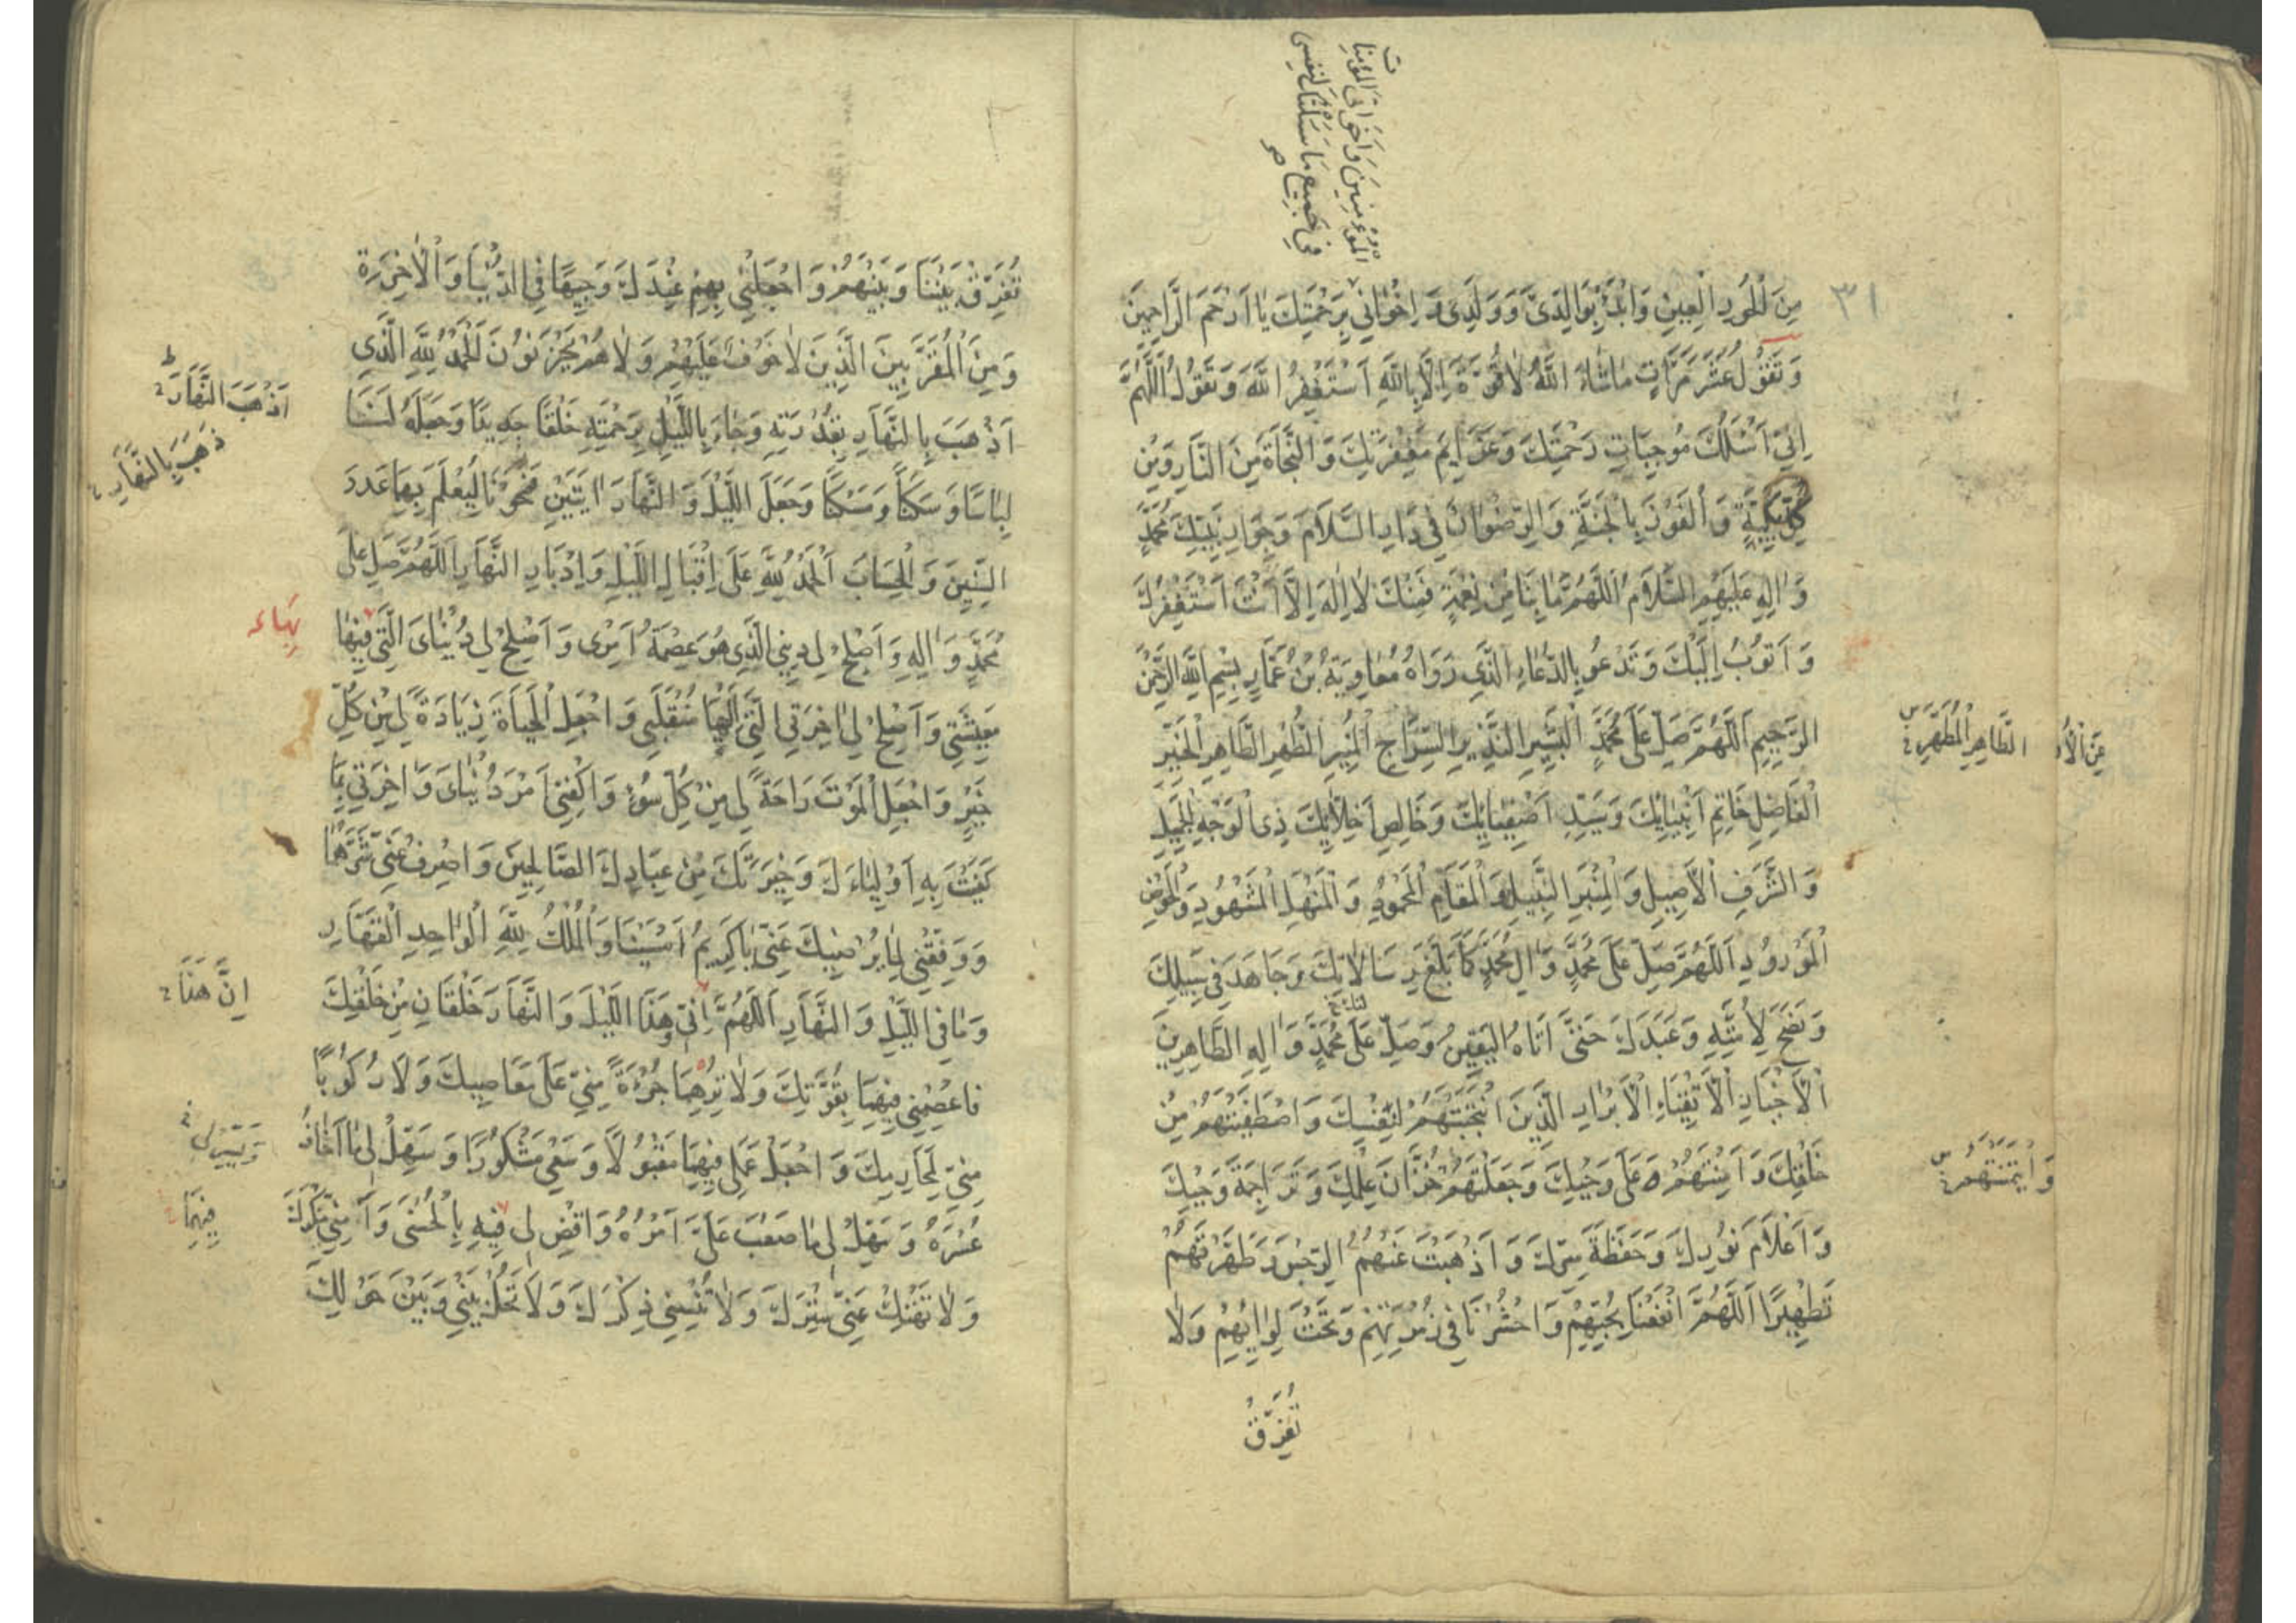 ٣١
الْمُؤْمِنِينَ وَاَخَوَاتِىَ الْمُؤْمِنَاتِ
فِي جَمِيعِ مَا سَئَلْتُكَ لِنَفْسِى
مِنَ الْحُورِ الْعِينِ وَابْدَأْ بِوَالِدَىَّ وَوَلَدِى وَ اِخْوَانِي بِرَحْمَتِكَ يَا اَرْحَمَ الرَّاحِمِينَ
وَتَقُولُ عَشْرَ مَرَّاتٍ مَاشَاءَ اللَّهُ لاَ قُوَّةَ اِلاَّ بِاللَّهِ اَسْتَغْفِرُ اللَّهَ وَتَقُولُ اَللَّهُمَّ
اِنِّي اَسْئَلُكَ مُوجِبَاتِ رَحْمَتِكَ وَعَزَايِمَ مَغْفِرَتِكَ وَالنَّجَاةَ مِنَ النَّارِ وَمِنْ
كُلِّ بَلِيَّةٍ وَالْفَوْزَ بِالْجَنَّةِ وَالرِّضْوَانَ فِي دَارِ السَّلاَمِ وَجِوَارِ نَبِيِّكَ مُحَمَّدٍ
وَاٰلِهِ عَلَيْهِمُ السَّلاَمُ اَللَّهُمَّ مَا بِنَا مِنْ نِعْمَةٍ فَمِنْكَ لاَ اِلٰهَ اِلاَّ اَنْتَ اَسْتَغْفِرُكَ
وَ اَتُوبُ اِلَيْكَ وَتَدْعُو بِالدُّعَاءِ الَّذِي رَوَاهُ مُعَاوِيَةُ بْنُ عَمَّارٍ بِسْمِ اللَّهِ الرَّحْمٰنِ
الرَّحِيمِ اَللَّهُمَّ صَلِّ عَلَى مُحَمَّدٍ الْبَشِيرِ النَّذِيرِ السِّرَاجِ الْمُنِيرِ الطُّهْرِ الطَّاهِرِ الْخَيِّرِ
الطَّاهِرِ الْمُطَهَّرِ
الْفَاضِلِ خَاتَمِ اَنْبِيَائِكَ وَسَيِّدِ اَصْفِيَائِكَ وَخَالِصِ اَخِلاَّئِكَ ذِى الْوَجْهِ الْجَمِيلِ
وَ الشَّرَفِ الْاَصِيلِ وَالْمِنْبَرِ النَّبِيلِ وَالْمَقَامِ الْمَحْمُودِ وَالْمَنْهَلِ الْمَشْهُودِ وَالْحَوْضِ
الْمَوْرُودِ اَللَّهُمَّ صَلِّ عَلَى مُحَمَّدٍ وَاٰلِ مُحَمَّدٍ كَمَا بَلَّغَ رِسَالاَتِكَ وَجَاهَدَ فِي سَبِيلِكَ
وَنَصَحَ لِاُمَّتِهِ وَعَبَدَكَ حَتَّى اَتَاهُ الْيَقِينُ وَصَلِّ عَلَى مُحَمَّدٍ وَاٰلِهِ الطَّاهِرِينَ
الْاَخْيَارِ الْاَتْقِيَاءِ الْاَبْرَارِ الَّذِينَ انْتَجَبْتَهُمْ لِنَفْسِكَ وَاصْطَفَيْتَهُمْ مِنْ
خَلْقِكَ وَ اَمِنْتَهُمْ عَلَى وَحْيِكَ وَجَعَلْتَهُمْ خُزَّانَ عِلْمِكَ وَتَرَاجِمَةَ وَحْيِكَ
وَائْتَمَنْتَهُمْ
وَ اَعْلاَمَ نُورِكَ وَحَفَظَةَ سِرِّكَ وَ اَذْهَبْتَ عَنْهُمُ الرِّجْسَ وَطَهَّرْتَهُمْ
تَطْهِيرًا اَللَّهُمَّ انْفَعْنَا بِحُبِّهِمْ وَاحْشُرْنَا فِي زُمْرَتِهِمْ وَتَحْتَ لِوَائِهِمْ وَلاَ
تُفَرِّقْ
تُفَرِّقْ بَيْنَنَا وَبَيْنَهُمْ وَاجْعَلْنِي بِهِمْ عِنْدَكَ وَجِيهًا فِي الدُّنْيَا وَالْاٰخِرَةِ
وَمِنَ الْمُقَرَّبِينَ الَّذِينَ لاَ خَوْفٌ عَلَيْهِمْ وَلاَ هُمْ يَحْزَنُونَ اَلْحَمْدُ لِلَّهِ الَّذِي
اَذْهَبَ بِالنَّهَارِ بِقُدْرَتِهِ وَجَاءَ بِاللَّيْلِ بِرَحْمَتِهِ خَلْقًا جَدِيدًا وَجَعَلَهُ لَنَا
اَذْهَبَ النَّهَارَ
ذَهَبَ بِالنَّهَارِ
لِبَاسًا وَسَكَنًا وَمَسْكَنًا وَجَعَلَ اللَّيْلَ وَ النَّهَارَ اٰيَتَيْنِ لِيُعْلَمَ بِهَا عَدَدَ
السِّنِينَ وَالْحِسَابَ اَلْحَمْدُ لِلَّهِ عَلَى اِقْبَالِ اللَّيْلِ وَاِدْبَارِ النَّهَارِ اَللَّهُمَّ صَلِّ عَلَى
مُحَمَّدٍ وَاٰلِهِ وَاَصْلِحْ لِي دِينِي الَّذِي هُوَ عِصْمَةُ اَمْرِى وَ اَصْلِحْ لِي دُنْيَاىَ الَّتِي فِيهَا
بِهَا
مَعِيشَتِي وَ اَصْلِحْ لِي اٰخِرَتِي الَّتِي اِلَيْهَا مُنْقَلَبِى وَ اجْعَلِ الْحَيَاةَ زِيَادَةً لِي مِنْ كُلِّ
خَيْرٍ وَ اجْعَلِ الْمَوْتَ رَاحَةً لِي مِنْ كُلِّ سُوءٍ وَ اكْفِنِي اَمْرَ دُنْيَاىَ وَ اٰخِرَتِي بِمَا
كَفَيْتَ بِهِ اَوْلِيَاءَكَ وَخِيَرَتَكَ مِنْ عِبَادِكَ الصَّالِحِينَ وَ اصْرِفْ عَنِّي شَرَّهُمَا
وَ وَفِّقْنِي لِمَا يُرْضِيكَ عَنِّي يَا كَرِيمُ اَمْسَيْنَا وَالْمُلْكُ لِلَّهِ الْوَاحِدِ الْقَهَّارِ
وَمَا فِي اللَّيْلِ وَ النَّهَارِ اَللَّهُمَّ اِنِّي وَهٰذَا اللَّيْلَ وَ النَّهَارَ خَلْقَانِ مِنْ خَلْقِكَ
اِنَّ هٰذَا
فَاعْصِمْنِي فِيهِمَا بِقُوَّتِكَ وَلاَ تُرِهِمَا جُرْءَةً مِنِّي عَلَى مَعَاصِيكَ وَلاَ رُكُوبًا
مِنِّي لِمَحَارِمِكَ وَ اجْعَلْ عَمَلِى فِيهِمَا مَقْبُولاً وَسَعْيِي مَشْكُورًا وَ سَهِّلْ لِي مَا اَخَافُ
وَيَسِّرْ لِي
عُسْرَهُ وَ سَهِّلْ لِي مَا صَعُبَ عَلَىَّ اَمْرُهُ وَ اقْضِ لِي فِيهِ بِالْحُسْنَى وَ اٰمِنِّي مَكْرَكَ
فِيهِمَا
وَ لاَ تَهْتِكْ عَنِّي سِتْرَكَ وَ لاَ تُنْسِنِي ذِكْرَكَ وَ لاَ تَحُلْ بَيْنِي وَبَيْنَ حَوْلِكَ